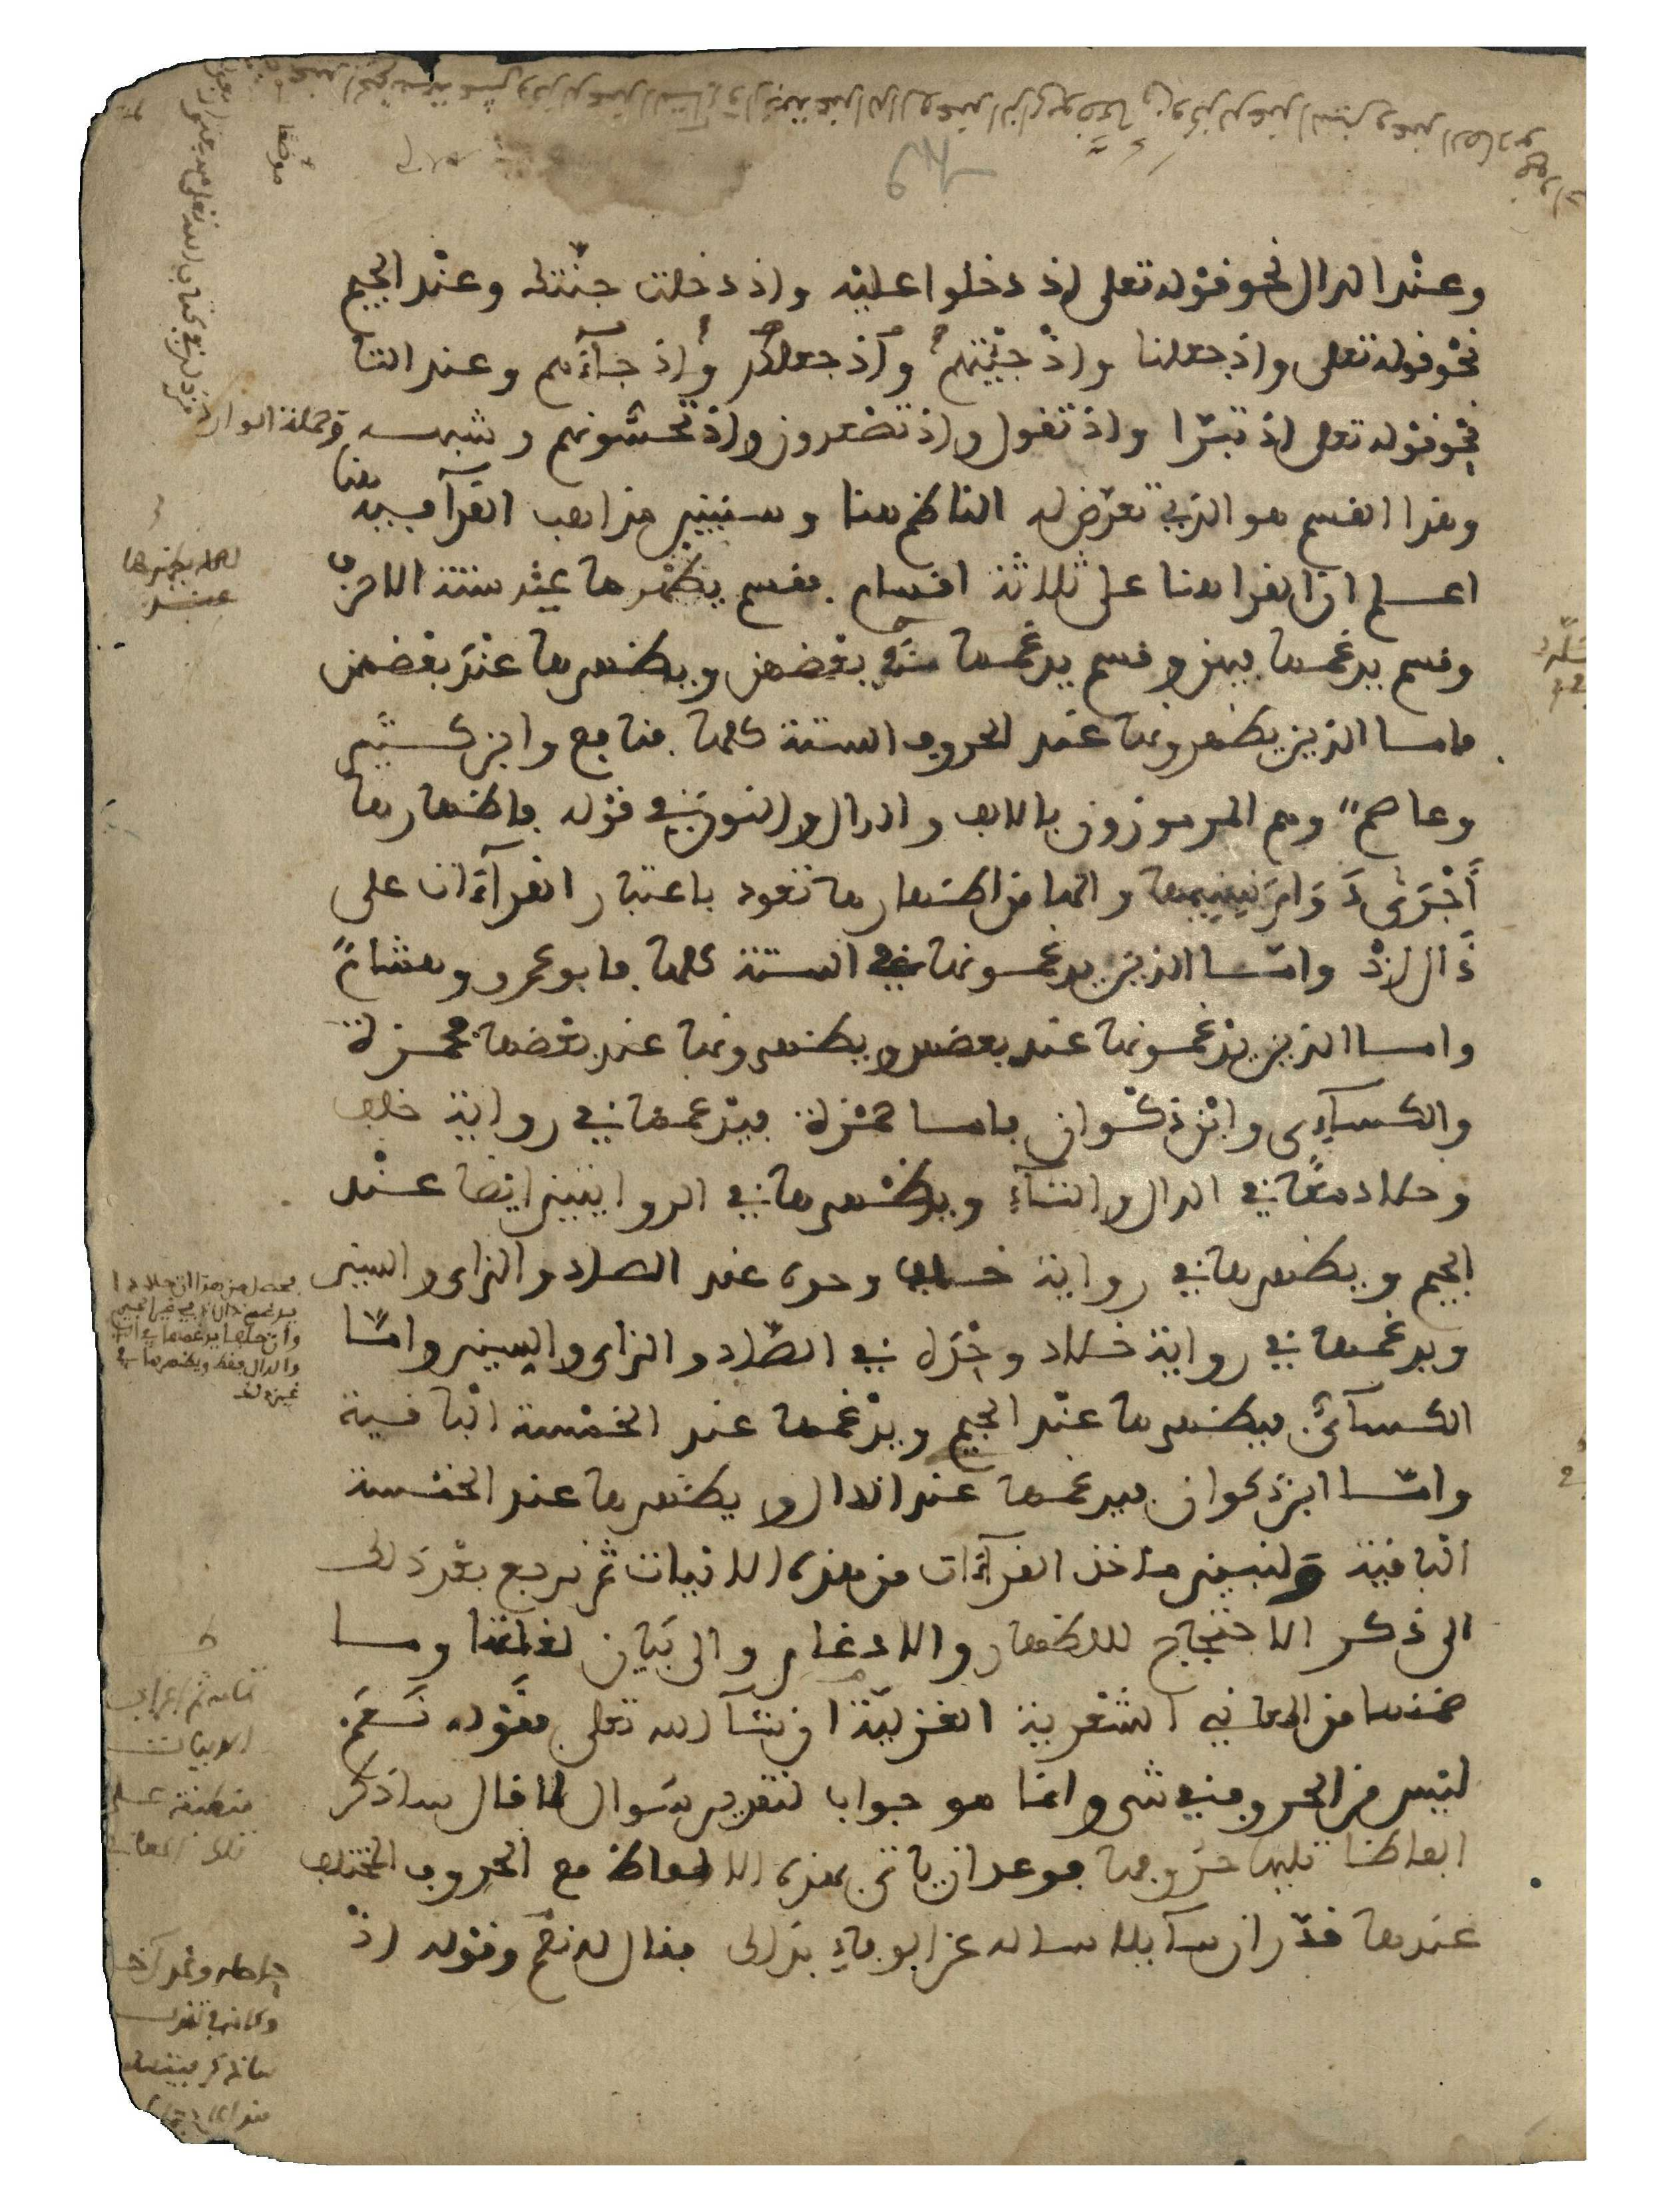 وعند الدال نحو قوله تعلى اذ دخلوا عليه واذ دخلت جنتك وعند الجيم
نحو قوله تعلى واذ جعلنا واذ جئتهم واذ جعلكم واذ جاءهم وعند التا
نحو قوله تعلى اذ تبرا واذ تقول واذ تصعدون واذ تحسونهم وشبهه وجملة الوارد
وهذا القسم هو الذي تعرض له الناظم هنا وسنبين مذاهب القرآ فيه هنا
اعلم ان القرا هنا على ثلاثة اقسام. فقسم يظهرها عند ستة الاحرف
وقسم يدغمها فيهن وقسم يدغمها في بعضهن ويظهرها عند بعضهن
فاما الذين يظهرونها عند الحروف الستة كلها. فنافع وابن كثير
وعاصم وهم المرموزون بالالف والدال والنون في قوله فاظهارها
أَجْرَى دَوَامَ نسيمها والها من اظهارها تعود باعتبار القرآءات على
ذال اذْ وامّا الذين يدغمونها في الستة كلها. فابو عمرو وهشام
واما الذين يدغمونها عند بعض ويظهرونها عند بعضها فحمزة
والكساءى وابن ذكوان فاما حمزة فيدغمها في رواية خلف
وخلاد معًا في الدال والتآء ويظهرها في الروايتين ايضا عند
الجيم ويظهرها في رواية خلف وحده عند الصاد والزاى والسين
ويدغمها في رواية خلاد وحده في الصّاد والزاى والسين وامّا
الكسآئي فيظهرها عند الجيم ويدغمها عند الخمسة الباقية
وامّا ابن ذكوان فيدغمها عند الدال ويظهرها عند الخمسة
الباقية ولنبين مآخذ القرآءات من هذه الابيات ثم نرجع بعد ذلك
الى ذكر الاحتجاج للاظهار والادغام والى بيان لغاتنا وما
ضمنها من المعاني الشعرية الغزلية ان شآء الله تعلى فقوله نَعَمْ
ليس من الحروف في شى وانما هو جواب لتقدير سوال لما قال ساذكر
الفاظا تليها حروفها فوعد ان ياتى بهذه الالفاظ مع الحروف المختلف
عندها قدّر ان سآئلا ساله عن الوفاء بذلك فقال له نعم وقوله اذْ
لعله يظهرها
عند
يحصل من هذا ان خلادا
يدغم ذال اذ في غير الجيم
وان خلفا يدغمها في التا
والدال فقط ويظهرها في
غيرهما